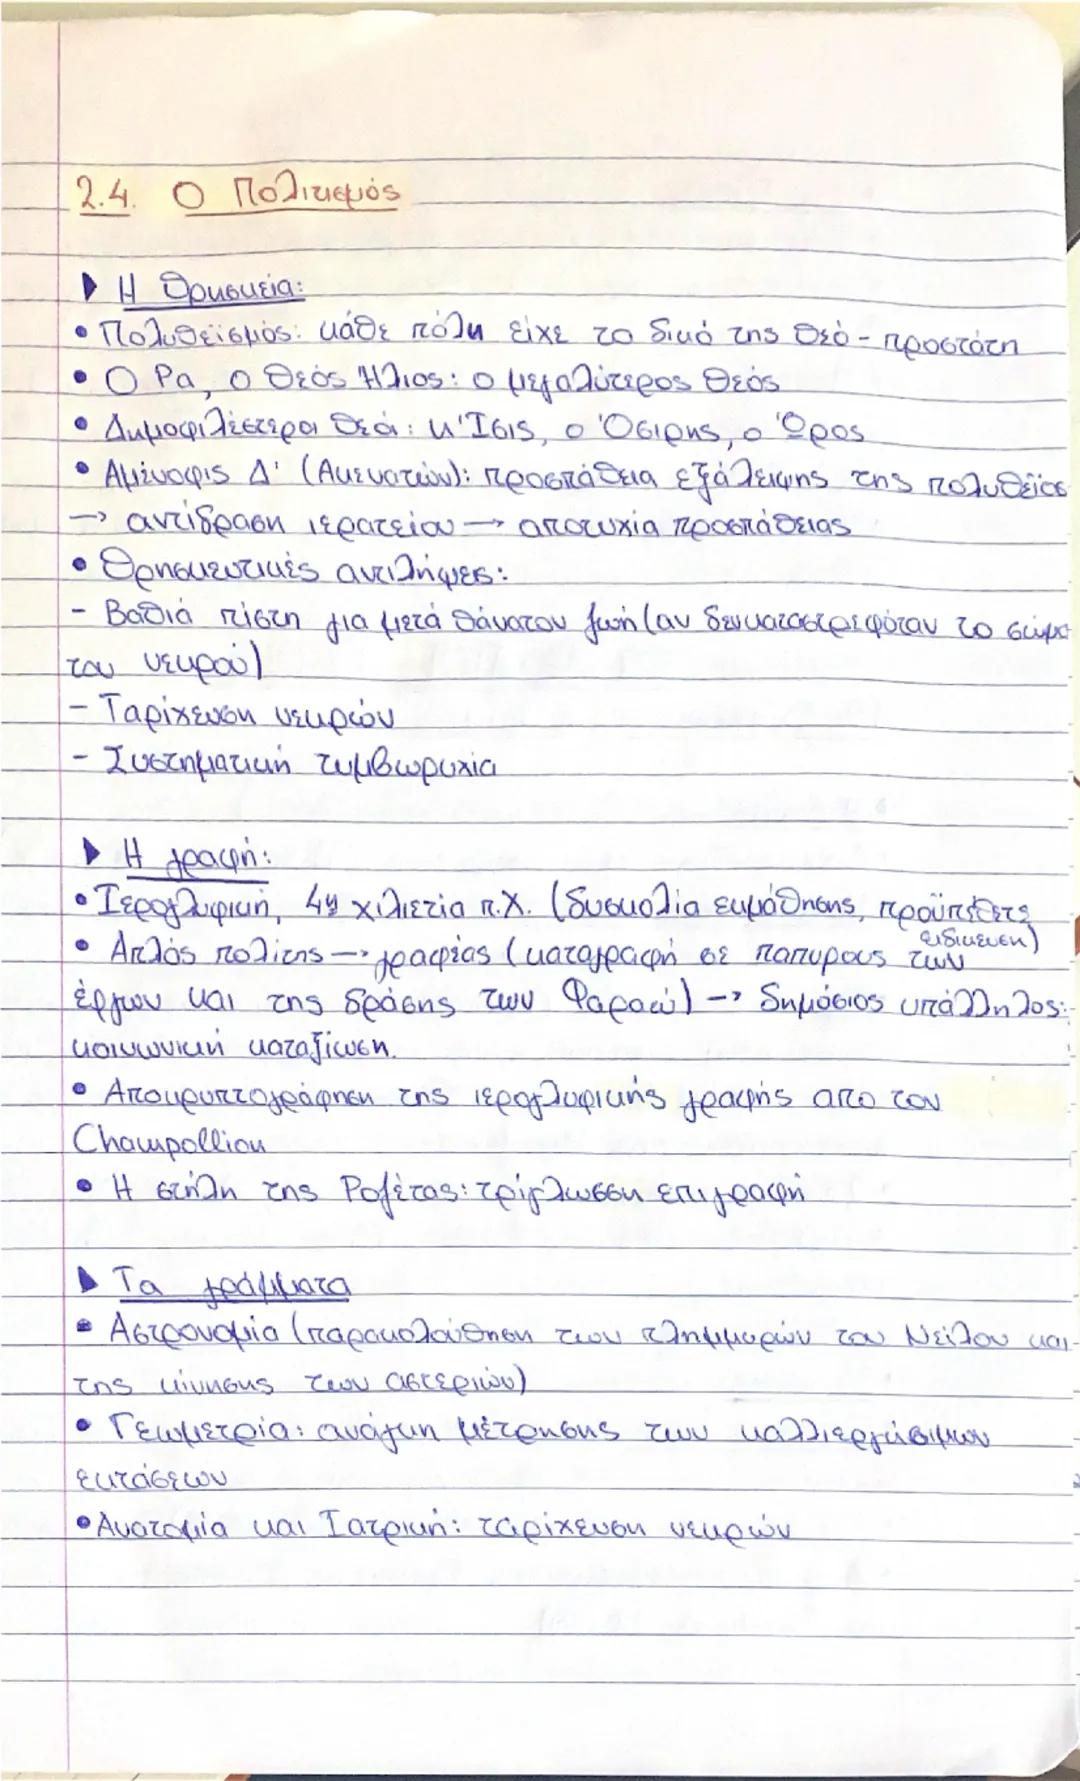 2.4. Ο Πολιτισμός
Η Θρησκεία:
• Πολυθεϊσμός: κάθε πόλη είχε το δικό της θεό - προστάτη
• Ο Ρα, ο θεός Ήλιος: ο μεγαλύτερος θεός
• Δημοφιλέστεροι θεοί: η Ίσις, ο Όσιρης, ο Ώρος
• Αμένοφις Δ' (Ακενατών): προσπάθεια εξάλειψης της πολυθεΐας
→ αντίδραση ιερατείου → αποτυχία προσπάθειας
• Θρησκευτικές αντιλήψεις:
- Βαθιά πίστη για μετά θάνατον ζωή (αν δεν καταστρεφόταν το σώμα
του νεκρού)
- Ταρίχευση νεκρών
- Συστηματική τυμβωρυχία
Η γραφή:
• Ιερογλυφική, 4η χιλιετία π.Χ. (δυσκολία εκμάθησης, προϋπέθετε
ειδίκευση)
• Απλός πολίτης → γραφέας (καταγραφή σε παπύρους των
έργων και της δράσης των Φαραώ) → δημόσιος υπάλληλος:
κοινωνική καταξίωση.
• Αποκρυπτογράφηση της ιερογλυφικής γραφής από τον
Champollion
• Η στήλη της Ροζέτας: τρίγλωσση επιγραφή
Τα γράμματα
• Αστρονομία (παρακολούθηση των πλημμυρών του Νείλου και
της κίνησης των αστεριών)
• Γεωμετρία: ανάγκη μέτρησης των καλλιεργήσιμων
εκτάσεων
• Ανατομία και Ιατρική: ταρίχευση νεκρών